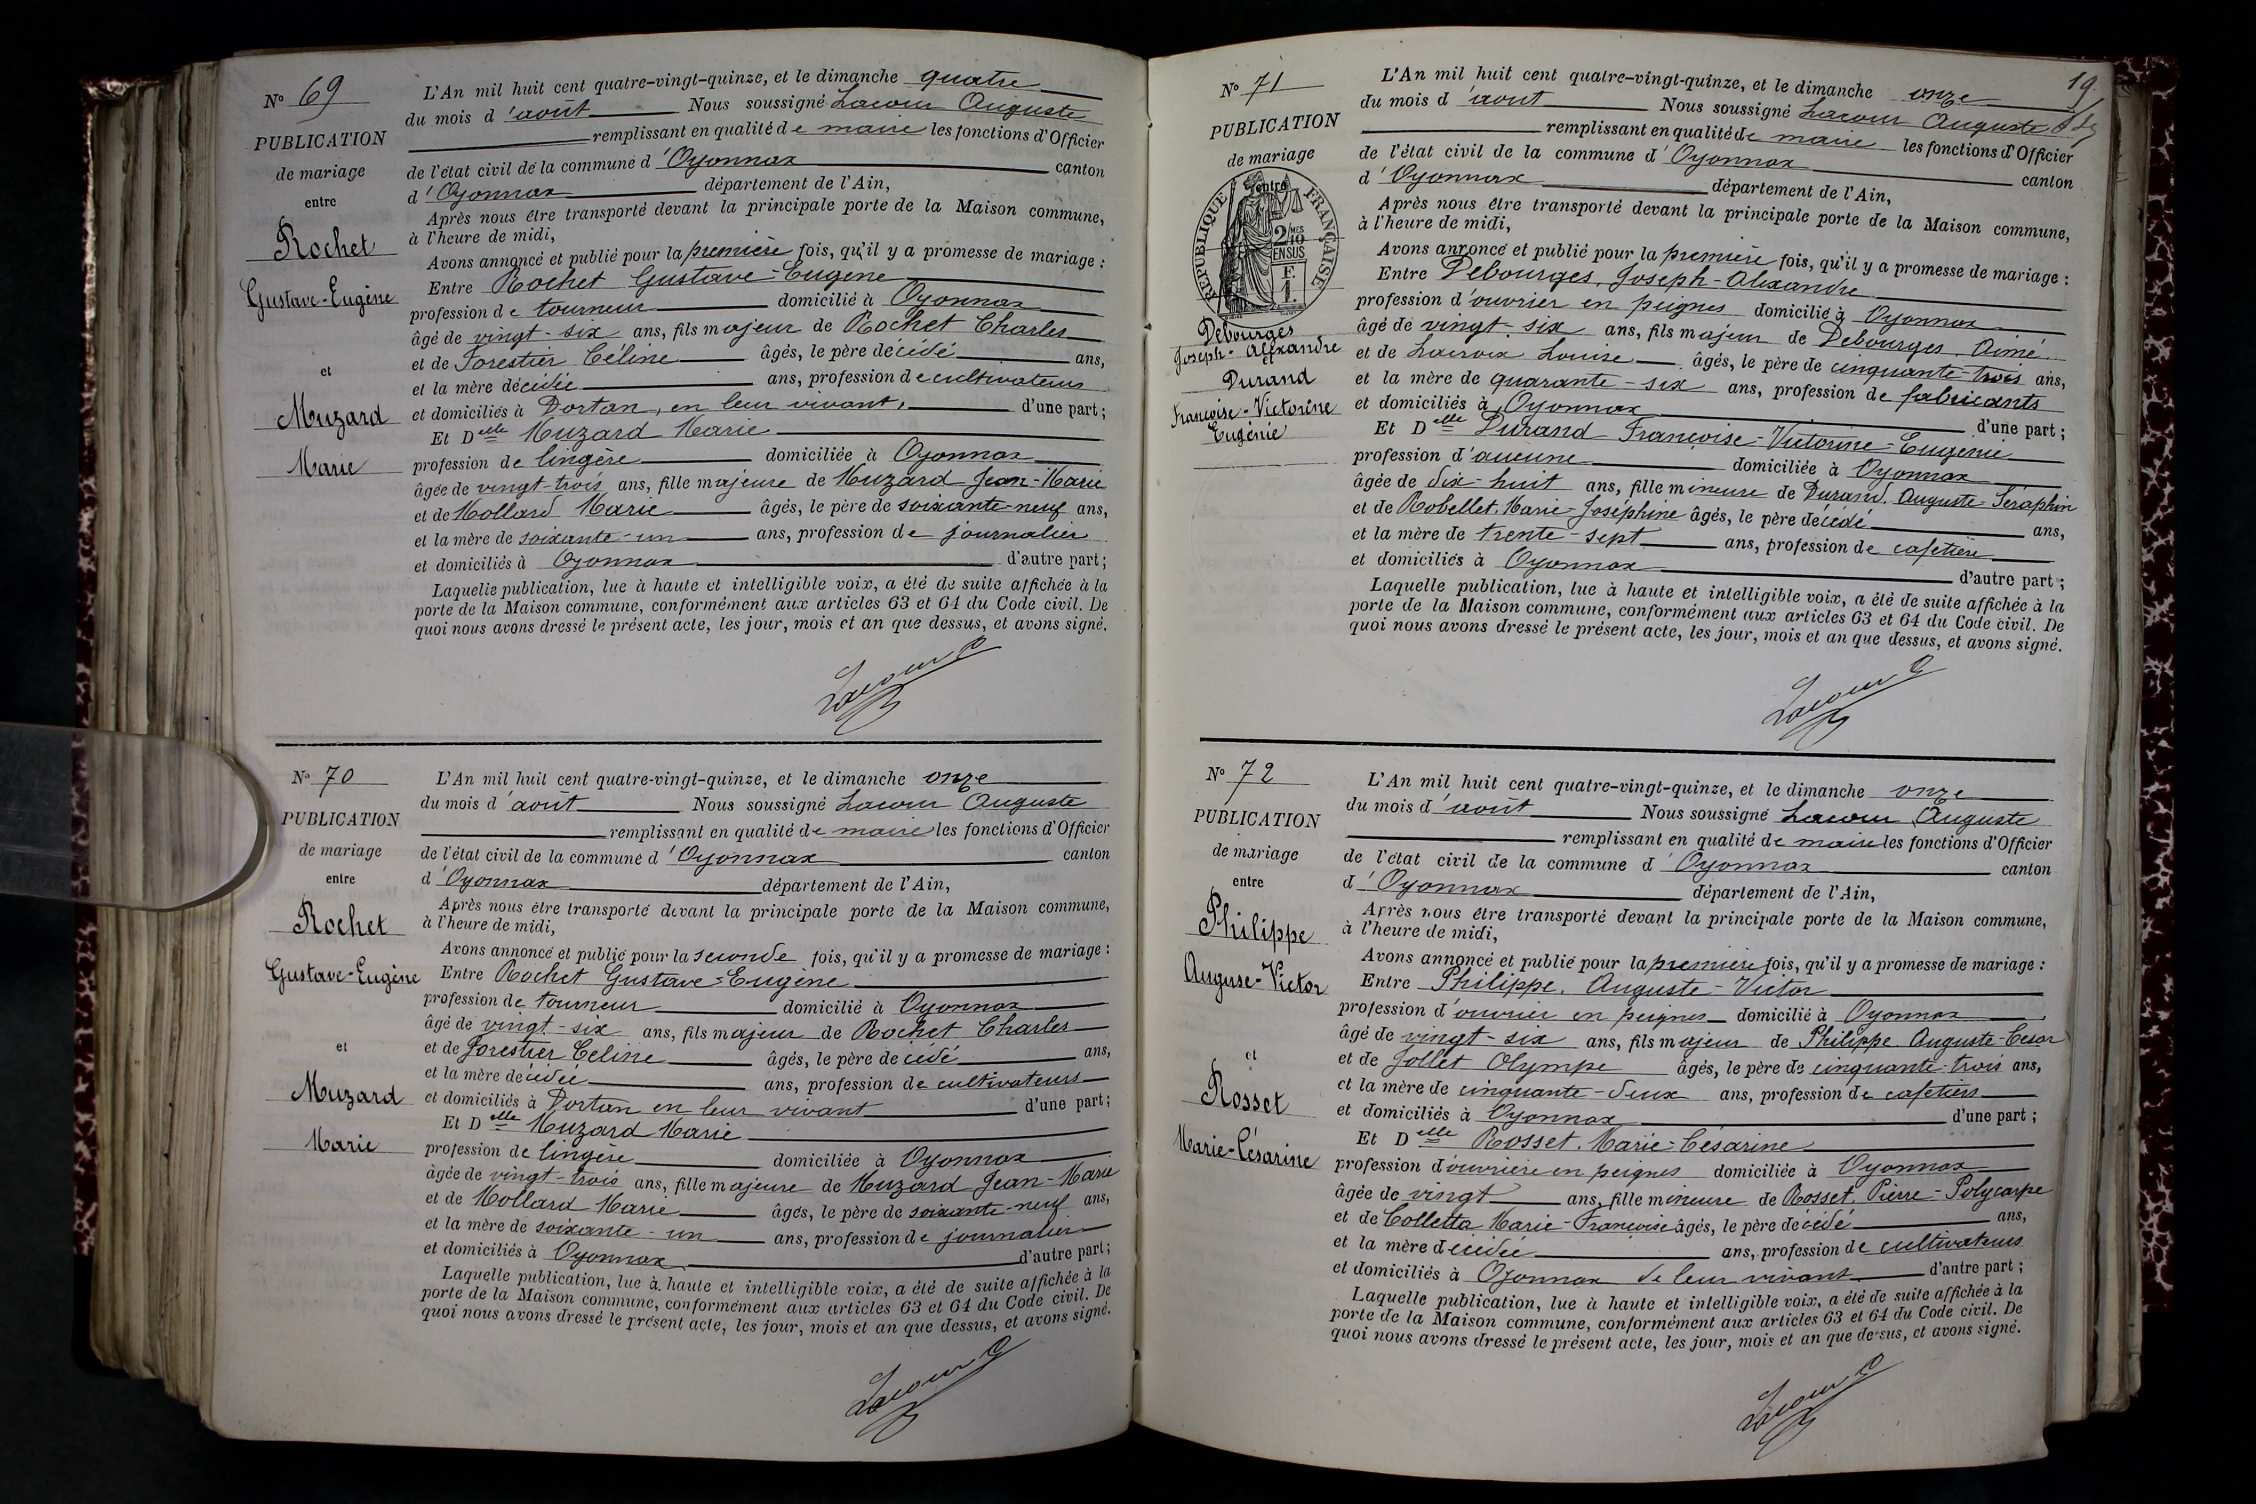 Nº 69
PUBLICATION
de mariage
entre
Rochet
Gustave-Eugène
et
Muzard
Marie
L'An mil huit cent quatre-vingt-quinze, et le dimanche quatre
du mois d'août Nous soussigné Lacour Auguste
remplissant en qualité de maire les fonctions d'Officier
de l'état civil de la commune d'Oyonnax canton
d'Oyonnax département de l'Ain,
Après nous être transporté devant la principale porte de la Maison commune,
à l'heure de midi,
Avons annoncé et publié pour la première fois, qu'il y a promesse de mariage :
Entre Rochet Gustave-Eugène
profession de tourneur domicilié à Oyonnax
âgé de vingt-six ans, fils majeur de Rochet Charles
et de Forestier Céline âgés, le père décédé ans,
et la mère décédée ans, profession de cultivateurs
et domiciliés à Dortan, en leur vivant, d'une part ;
Et Delle Muzard Marie
profession de lingère domiciliée à Oyonnax
âgée de vingt-trois ans, fille majeure de Muzard Jean-Marie
et de Mollard Marie âgés, le père de soixante-neuf ans,
et la mère de soixante-un ans, profession de journalier
et domiciliés à Oyonnax d'autre part ;
Laquelle publication, lue à haute et intelligible voix, a été de suite affichée à la
porte de la Maison commune, conformément aux articles 63 et 64 du Code civil. De
quoi nous avons dressé le présent acte, les jour, mois et an que dessus, et avons signé.
Lacour A
Nº 70
PUBLICATION
de mariage
entre
Rochet
Gustave-Eugène
et
Muzard
Marie
L'An mil huit cent quatre-vingt-quinze, et le dimanche onze
du mois d'août Nous soussigné Lacour Auguste
remplissant en qualité de maire les fonctions d'Officier
de l'état civil de la commune d'Oyonnax canton
d'Oyonnax département de l'Ain,
Après nous être transporté devant la principale porte de la Maison commune,
à l'heure de midi,
Avons annoncé et publié pour la seconde fois, qu'il y a promesse de mariage :
Entre Rochet Gustave-Eugène
profession de tourneur domicilié à Oyonnax
âgé de vingt-six ans, fils majeur de Rochet Charles
et de Forestier Céline âgés, le père décédé ans,
et la mère décédée ans, profession de cultivateurs
et domiciliés à Dortan en leur vivant d'une part ;
Et Delle Muzard Marie
profession de lingère domiciliée à Oyonnax
âgée de vingt-trois ans, fille majeure de Muzard Jean-Marie
et de Mollard Marie âgés, le père de soixante-neuf ans,
et la mère de soixante-un ans, profession de journalier
et domiciliés à Oyonnax d'autre part ;
Laquelle publication, lue à haute et intelligible voix, a été de suite affichée à la
porte de la Maison commune, conformément aux articles 63 et 64 du Code civil. De
quoi nous avons dressé le présent acte, les jour, mois et an que dessus, et avons signé.
Lacour A
19
Nº 71
PUBLICATION
de mariage
entre
RÉPUBLIQUE FRANÇAISE
2/10MES
EN SUS
F.
1.
Debourges
Joseph-Alexandre
et
Durand
Françoise-Victorine
Eugénie
L'An mil huit cent quatre-vingt-quinze, et le dimanche onze
du mois d'août Nous soussigné Lacour Auguste
remplissant en qualité de maire les fonctions d'Officier
de l'état civil de la commune d'Oyonnax canton
d'Oyonnax département de l'Ain,
Après nous être transporté devant la principale porte de la Maison commune,
à l'heure de midi,
Avons annoncé et publié pour la première fois, qu'il y a promesse de mariage :
Entre Debourges, Joseph-Alexandre
profession d'ouvrier en peignes domicilié à Oyonnax
âgé de vingt-six ans, fils majeur de Debourges. Aimé
et de Lacroix Louise âgés, le père de cinquante-trois ans,
et la mère de quarante-six ans, profession de fabricants
et domiciliés à Oyonnax d'une part ;
Et Delle Durand Françoise-Victorine-Eugénie
profession d'aucune domiciliée à Oyonnax
âgée de dix-huit ans, fille mineure de Durand. Auguste-Séraphin
et de Robellet. Marie-Joséphine âgés, le père décédé ans,
et la mère de trente-sept ans, profession de cafetière
et domiciliés à Oyonnax d'autre part ;
Laquelle publication, lue à haute et intelligible voix, a été de suite affichée à la
porte de la Maison commune, conformément aux articles 63 et 64 du Code civil. De
quoi nous avons dressé le présent acte, les jour, mois et an que dessus, et avons signé.
Lacour A
Nº 72
PUBLICATION
de mariage
entre
Philippe
Auguse-Victor
et
Rosset
Marie-Césarine
L'An mil huit cent quatre-vingt-quinze, et le dimanche onze
du mois d'août Nous soussigné Lacour Auguste
remplissant en qualité de maire les fonctions d'Officier
de l'état civil de la commune d'Oyonnax canton
d'Oyonnax département de l'Ain,
Après nous être transporté devant la principale porte de la Maison commune,
à l'heure de midi,
Avons annoncé et publié pour la première fois, qu'il y a promesse de mariage :
Entre Philippe. Auguste-Victor
profession d'ouvrier en peignes domicilié à Oyonnax
âgé de vingt-six ans, fils majeur de Philippe Auguste-César
et de Jollet Olympe âgés, le père de cinquante-trois ans,
et la mère de cinquante-deux ans, profession de cafetiers
et domiciliés à Oyonnax d'une part ;
Et Delle Rosset. Marie-Césarine
profession d'ouvrière en peignes domiciliée à Oyonnax
âgée de vingt ans, fille mineure de Rosset. Pierre-Polycarpe
et de Colletta Marie-Françoise âgés, le père décédé ans,
et la mère décédée ans, profession de cultivateurs
et domiciliés à Oyonnax de leur vivant d'autre part ;
Laquelle publication, lue à haute et intelligible voix, a été de suite affichée à la
porte de la Maison commune, conformément aux articles 63 et 64 du Code civil. De
quoi nous avons dressé le présent acte, les jour, mois et an que dessus, et avons signé.
Lacour A